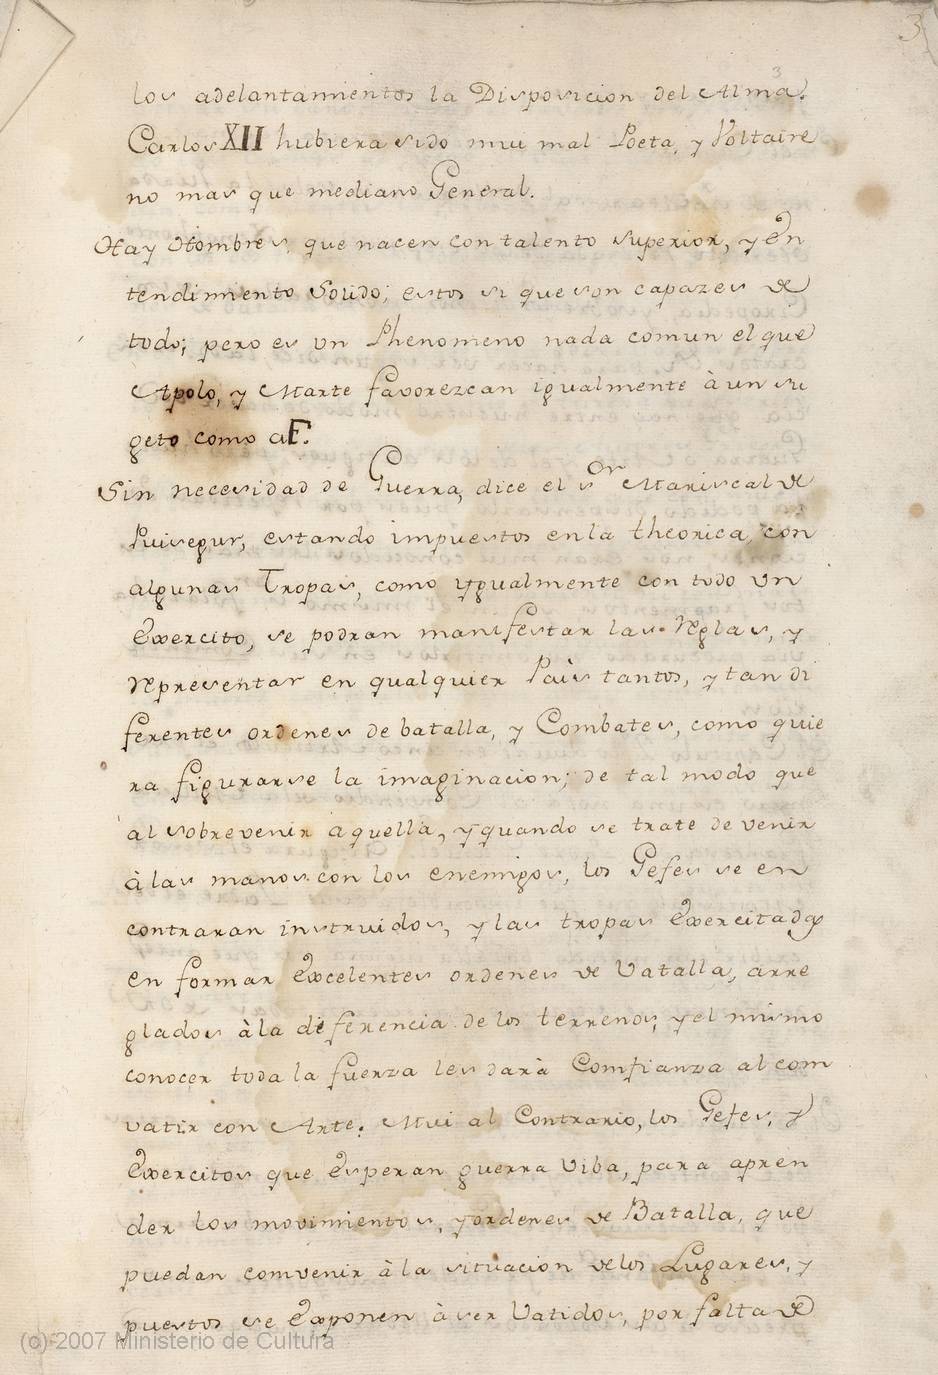 3
3
los adelantamientos la Disposicion del Alma.
Carlos XII hubiera sido mui mal Poeta, y Voltaire
no mas que mediano General.
Hay Hombres, que nacen con talento superior, y en
tendimiento Solido; estos si que son capazes de
todo; pero es un Phenomeno nada comun el que
Apolo, y Marte favorezcan igualmente à un su
geto como a F.
Sin necesidad de Guerra, dice el sor Mariscal de
Puisegur, estando impuestos en la theorica, con
algunas Tropas, como ygualmente con todo un
Exercito, se podran manifestar las Reglas, y
representar en qualquier Paìs tantos, y tan di
ferentes ordenes de batalla, y Combates, como quie
ra figurarse la imaginacion; de tal modo que
al sobrevenir aquella, y quando se trate de venir
à las manos con los enemigos, los Gefes se en
contraran instruidos, y las tropas Exercitadas
en formar Excelentes ordenes de Vatalla, arre
glados à la diferencia de los terrenos; y el mismo
conocer toda la fuerza les darà Comfianza al com
vatir con Arte. Mui al Contrario, los Gefes, y
Exercitos que Esperan guerra viba, para apren
der los movimientos, y ordenes de Batalla, que
puedan comvenir à la situacion de los Lugares, y
puestos se Exponen à ser Vatidos, por falta de
(c) 2007 Ministerio de Cultura